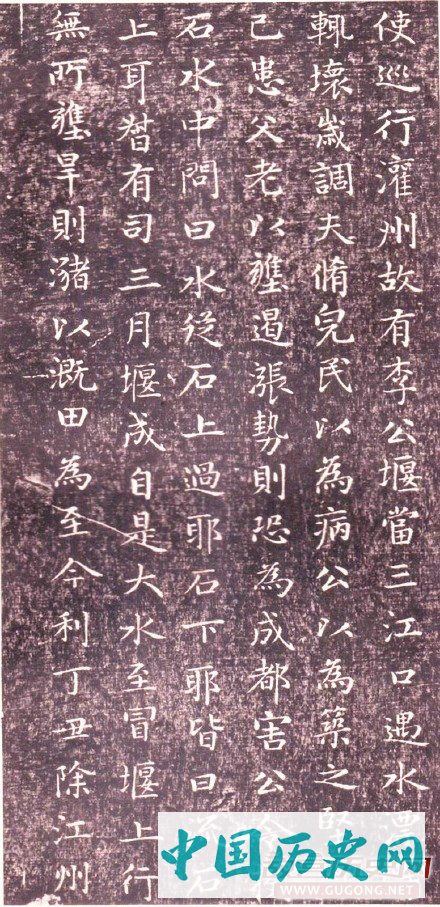 使巡行灌州故有李公堰當三江口遇水漂
輒壞歲調夫脩完民以為病公以為築之
已患父老以壅遏漲勢則恐為成都害公
石水中問曰水從石上過耶石下耶皆曰石
上耳督有司三月堰成自是大水至冒堰上行
無所壅旱則瀦以溉田為至今利丁丑除江州
中国历史网
WWW.GUGONG.NET